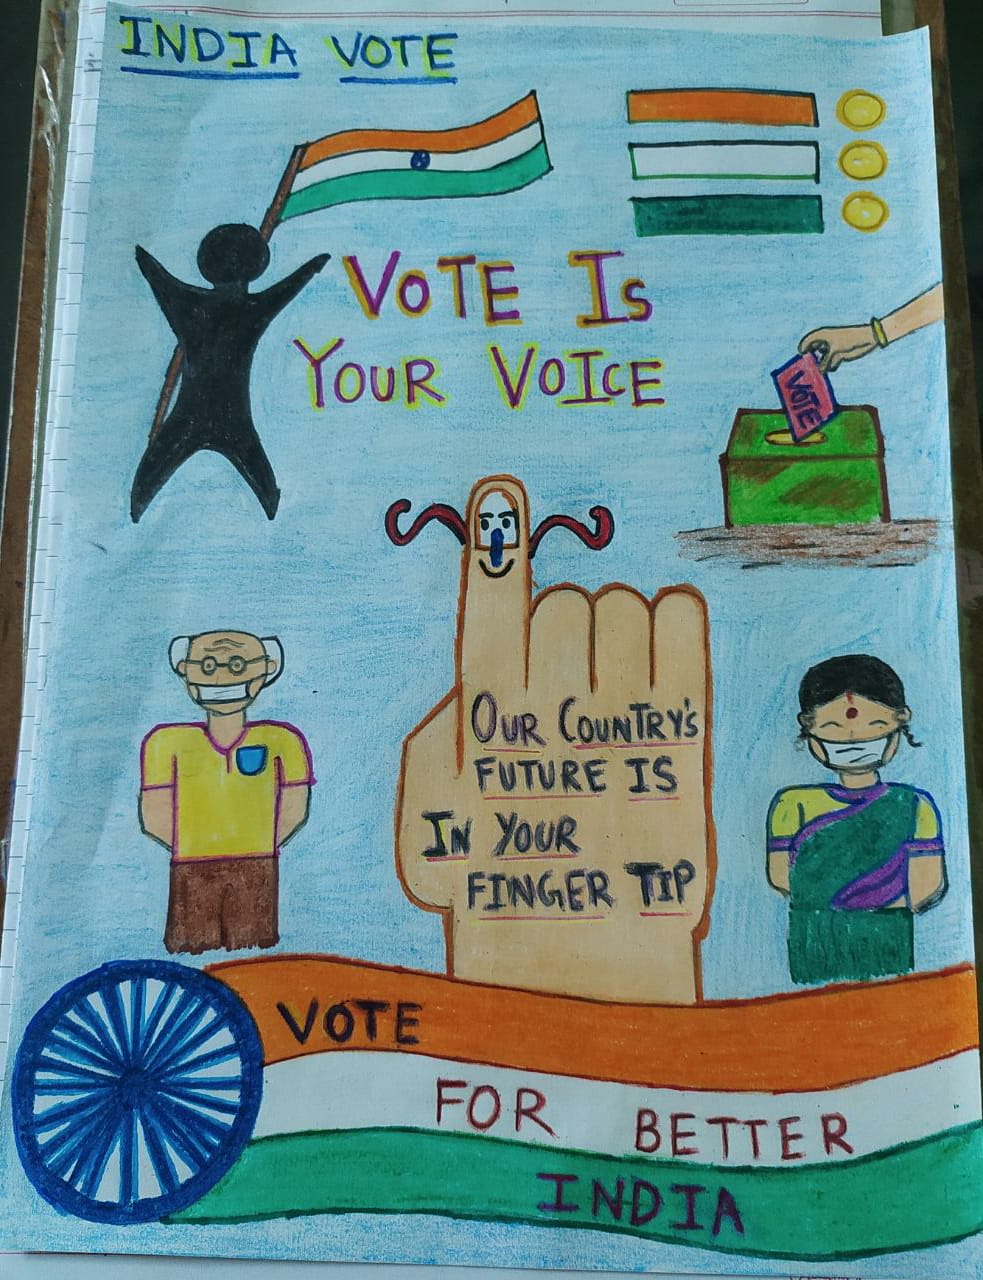 INDIA VOTE
VOTE IS
YOUR VOICE
VOTE
OUR COUNTRY'S
FUTURE IS
IN YOUR
FINGER TIP
VOTE
FOR BETTER
INDIA